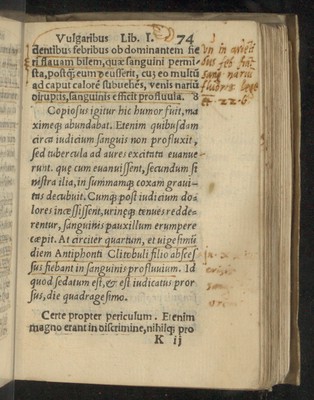 Vulgaribus Lib. I. 74
dentibus febribus ob dominantem fie
ri flauam bilem, quæ sanguini permi-
sta, postq̃ eum ꝑeusserit, cuȝ eo multū
ad caput calorẽ subuehẽs, venis nariū
diruptis, sanguinis efficit profluuia.
Copiosus igitur hic humor fuit, ma
ximeq; abundabat. Etenim quibusdam
circa iudicium sanguis non profluxit,
sed tubercula ad aures excitata euanue
runt. quę cum euanuissent, secundum si
nistra ilia, in summamq; coxam graui-
tas decubuit. Cumq; post iudicium do-
lores incessissent, urinęq; tenues redde-
rentur, sanguinis pauxillum erumpere
cæpit. At circiter quartum, et uigesimū
diem Antiphonti Clitobuli filio absces
sus fiebant in sanguinis profluuium. Id
quod sedatum est, & est iudicatus pror
sus, die quadragesimo.
Certe propter periculum. Etenim
magno erant in discrimine, nihilq; pro
K ij